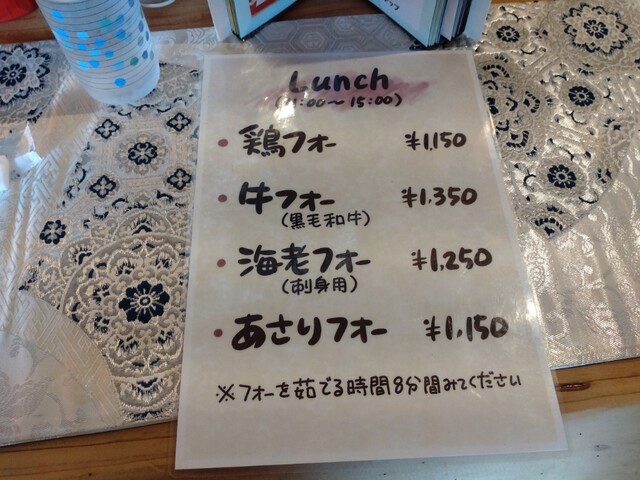 Lunch
(11:00～15:00)
• 鶏フォー ¥1,150
• 牛フォー ¥1,350
(黒毛和牛)
• 海老フォー ¥1,250
(刺身用)
• あさりフォー ¥1,150
※フォーを茹でる時間8分間みてください